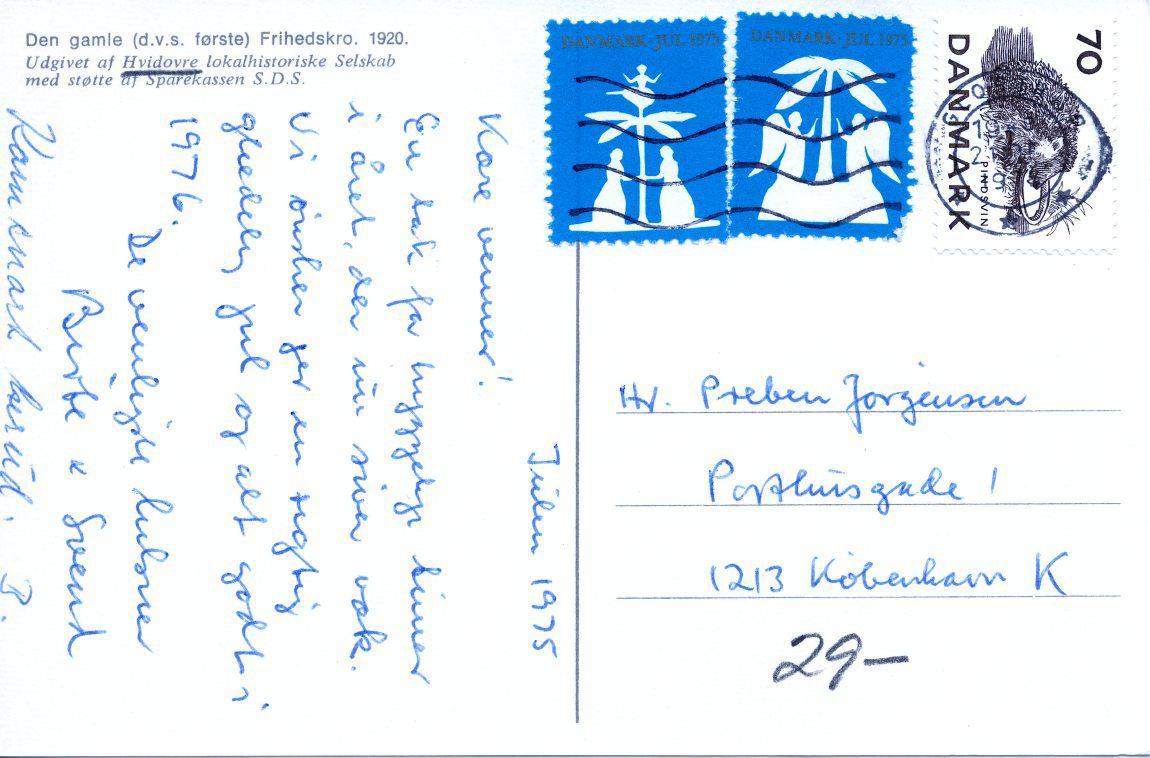 Den gamle (d.v.s. første) Frihedskro. 1920.
Udgivet af Hvidovre lokalhistoriske Selskab
med støtte af Sparekassen S.D.S.
DANMARK · JUL 1975
DANMARK · JUL 1975
70
DANMARK
PINDSVIN
Julen 1975
Kære venner!
En tak for hyggelige timer
i året, der nu svier væk.
Vi ønsker jer en rigtig
glædelig jul og alt godt i
1976.
De venligste hilsner
Birthe & Svend
Kom snart herud. B.
Hr. Preben Jørgensen
Posthusgade 1
1213 København K
29-